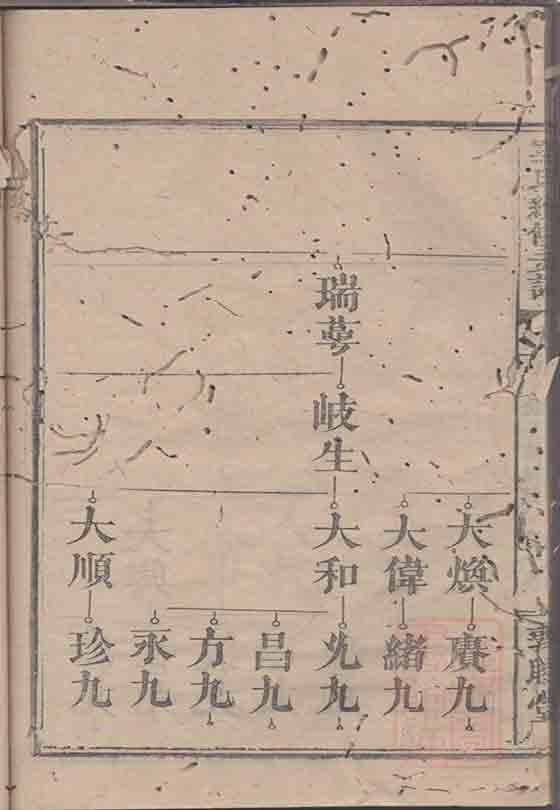 大煥
賡九
大偉
緒九
瑞萼
岐生
大和
光九
昌九
方九
永九
大順
珍九